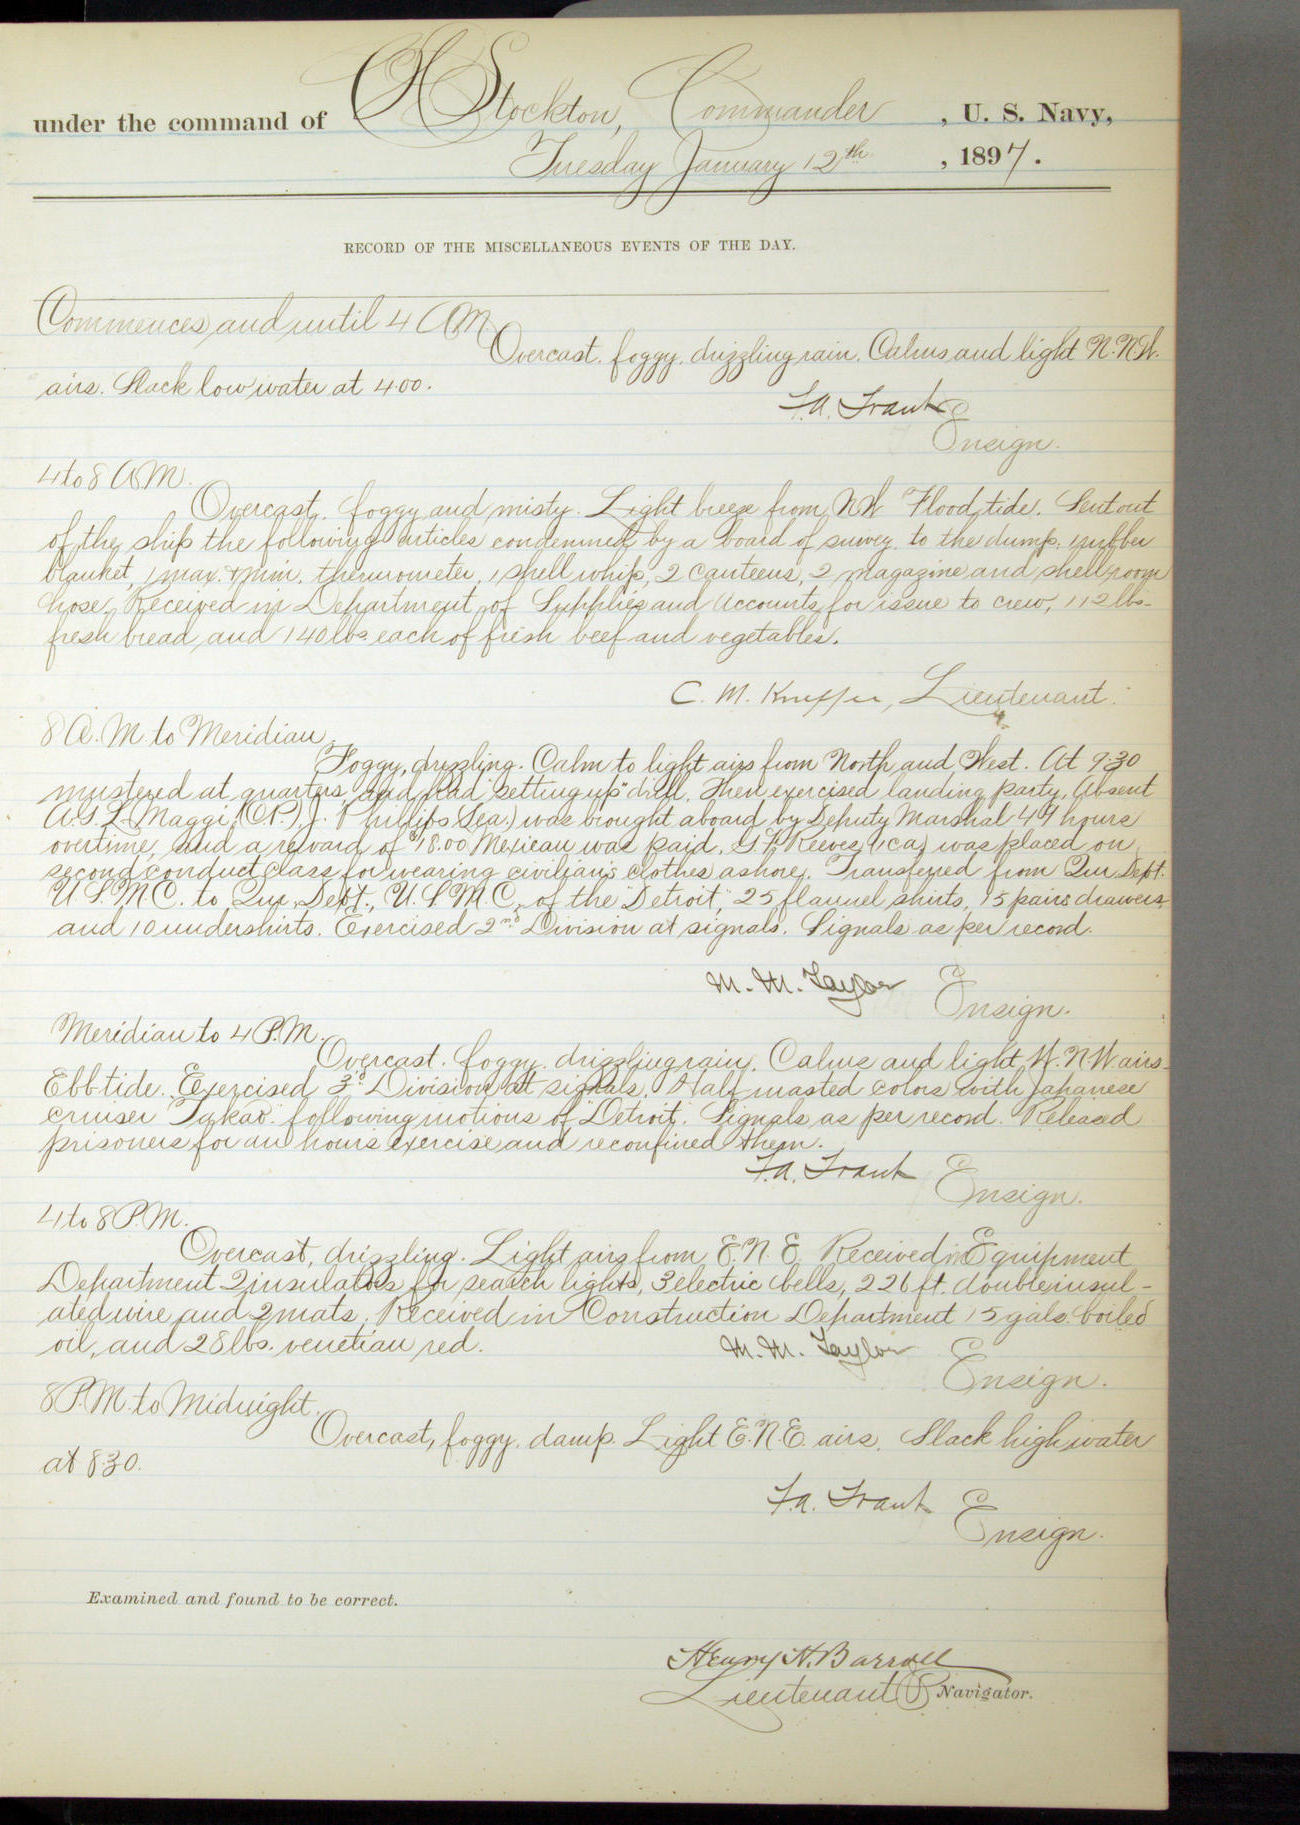 under the command of C H Stockton, Commander , U. S. Navy,
Tuesday January 12th , 1897.
RECORD OF THE MISCELLANEOUS EVENTS OF THE DAY.
Commences and until 4 A M
Overcast. foggy. drizzling rain. Calms and light N.N.W.
airs. Slack low water at 4.00.
F. A. Traut
Ensign.
4 to 8 A M.
Overcast, foggy and misty. Light breeze from NW Flood tide. Sent out
of the ship the following articles condemned by a board of survey. to the dump. 1 rubber
blanket, 1 max. & min. thermometer, 1 shell whip, 2 canteens, 2 magazine and shell room
hose. Received in Department of Supplies and Accounts for issue to crew, 112 lbs.
fresh bread and 140 lbs each of fresh beef and vegetables.
C. M. Knepper, Lieutenant.
8 A. M. to Meridian.
Foggy, drizzling. Calm to light airs from North and West. At 9.30
mustered at quarters and had "setting up" drill. Then exercised landing party. Absent
A.S.L. Maggi, (OP) J. Phillips (Sea.) was brought aboard by Deputy Marshal 49 hours
overtime, and a reward of $18.00 Mexican was paid. Reeves was placed on
second conduct class for wearing civilian's clothes ashore. Transferred from Qur. Dept.
U.S.M.C. to Qur. Dept., U.S.M.C, of the "Detroit", 25 flannel shirts, 15 pairs drawers
and 10 undershirts. Exercised 2nd Division at signals. Signals as per record.
M. M. Taylor Ensign.
Meridian to 4 P.M.
Overcast. foggy. drizzling rain. Calms and light W.N.W airs.
Ebb tide. Exercised 3d Division at signals. Half masted colors with Japanese
cruiser "Takao" following motions of "Detroit." Signals as per record. Released
prisoners for an hours exercise and reconfined them.
F. A. Traut Ensign.
4 to 8 P.M.
Overcast, drizzling. Light airs from E.N.E. Received in Equipment
Department 2 insulators for search lights, 3 electric bells, 226 ft. double insul-
ated wire and 2 mats. Received in Construction Department 15 gals. boiled
oil, and 28 lbs. venetian red.
M. M. Taylor Ensign.
8 P.M. to Midnight.
Overcast, foggy. damp. Light E.N.E. airs. Slack high water
at 8.30.
F. A. Traut Ensign.
Examined and found to be correct.
Henry H. Barroll
Lieutenant Navigator.